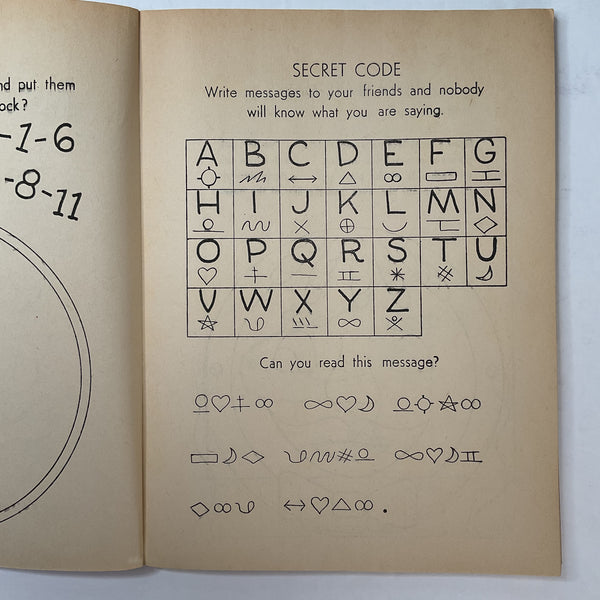 nd put them
ock?
-1-6
-8-11
SECRET CODE
Write messages to your friends and nobody
will know what you are saying.
A B C D E F G
H I J K L M N
O P Q R S T U
V W X Y Z
Can you read this message?